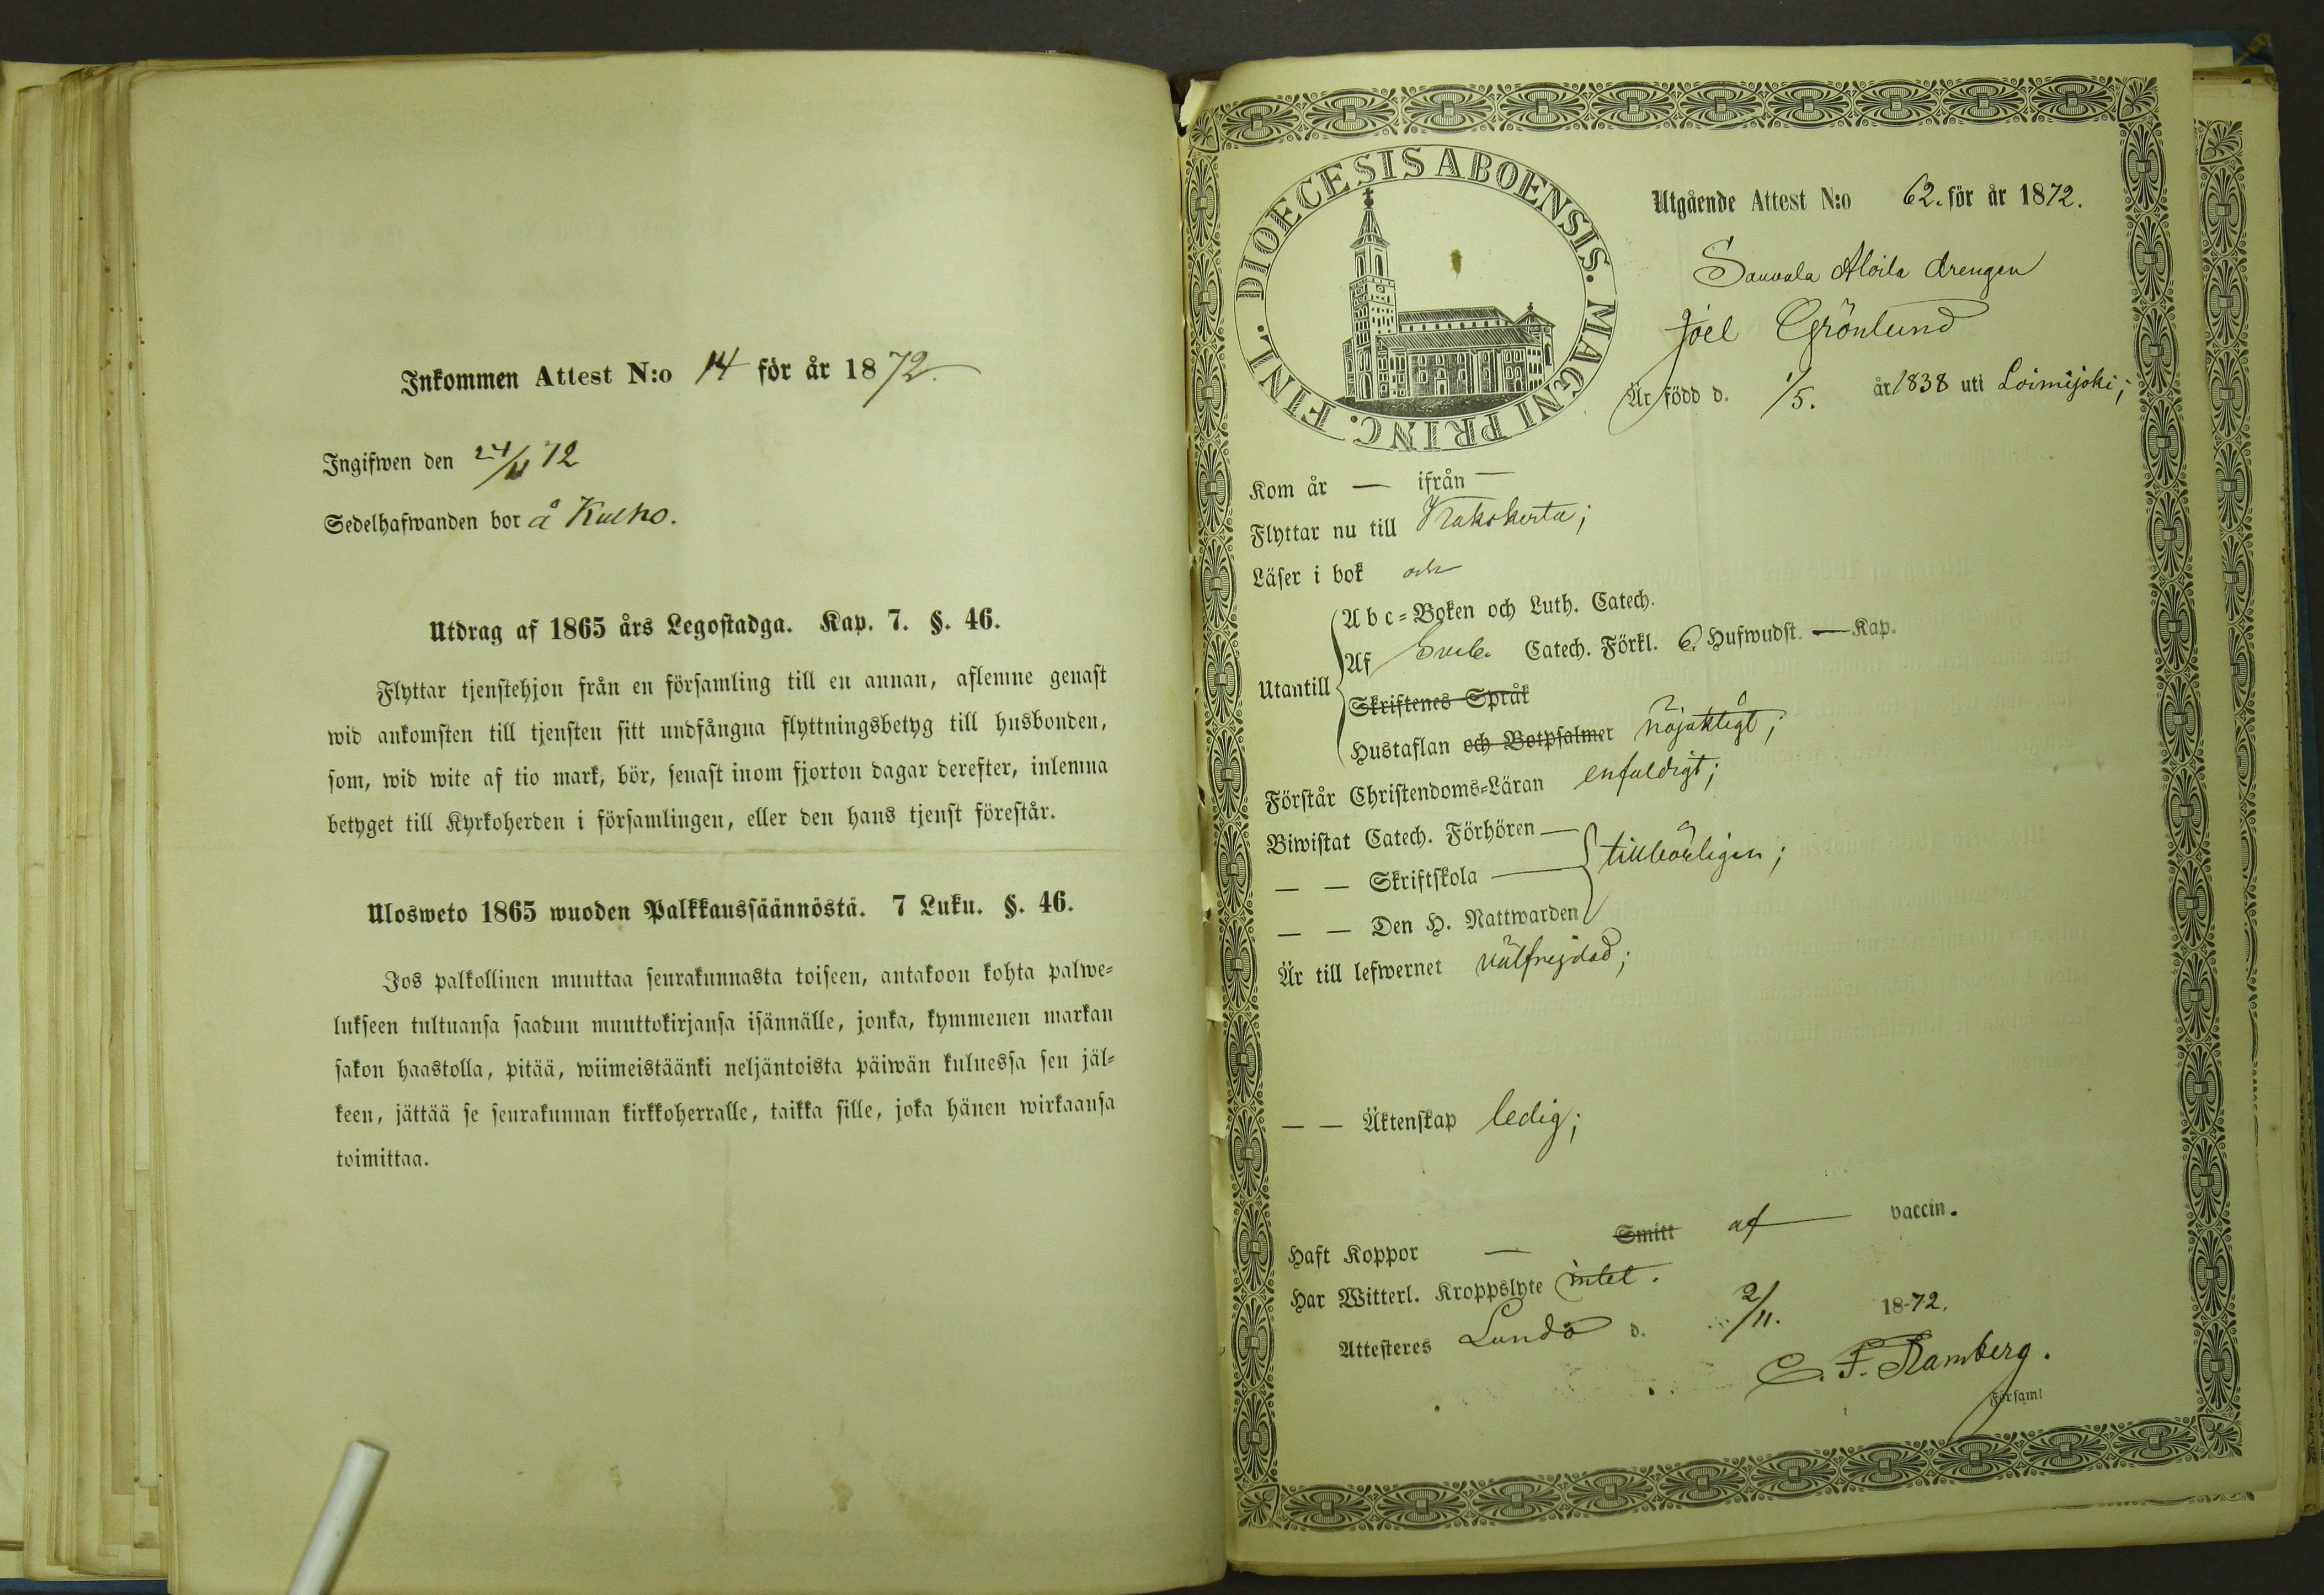 Inkommen Attest N:o 14 för år 1872.
Ingifwen den 24/11 72
Sedelhafwanden bor å Kulho.
Utdrag af 1865 års Legostadga. Kap. 7. §. 46.
Flyttar tjenstehjon från en församling till en annan, aflemne genast
wid ankomsten till tjensten sitt undfångna flyttningsbetyg till husbonden,
som, wid wite af tio mark, bör, senast inom fjorton dagar derefter, inlemna
betyget till Kyrkoherden i församlingen, eller den hans tjenst förestår.
Ulosweto 1865 wuoden Palkkaussäännöstä. 7 Luku. §. 46.
Jos palkollinen muuttaa seurakunnasta toiseen, antakoon kohta palwe-
lukseen tultuansa saadun muuttokirjansa isännälle, jonka, kymmenen markan
sakon haastolla, pitää, wiimeistäänki neljäntoista päiwän kuluessa sen jäl-
keen, jättää se seurakunnan kirkkoherralle, taikka sille, joka hänen wirkaansa
toimittaa.
DIOECESIS ABOENSIS. MAGNI PRINC. FINL.
Utgående Attest N:o 62. för år 1872.
Sauvala Aloila drengen
Joel Grönlund
Är född d. 1/5. år 1838 uti Loimijoki;
Kom år — ifrån —
Flyttar nu till Kakskerta;
Läser i bok och
Utantill
Abc-Boken och Luth. Catech.
Af Sveb. Catech. Förkl. 6. Hufwudst. — Kap.
Skriftenes Språk
Hustaflan och Botpsalmer nöjaktigt;
Förstår Christendoms-Läran enfaldigt;
Biwistat Catech. Förhören —
— — Skriftskola — tillbörligen;
— — Den H. Nattwarden
Är till lefwernet välfrejdad;
— — Äktenskap ledig;
Haft Koppor — Smitt af — vaccin.
Har Witterl. Kroppslyte intet.
Attesteres Lundo d. 2/11. 1872.
C. F. Ramberg.
Församl